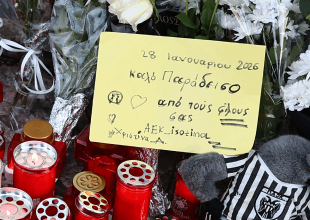 28 Ιανουαρίου 2026
Καλό Παράδεισο
από τους φίλους
σας
ΑΕΚ_isotima
Χριστίνα_Δ.